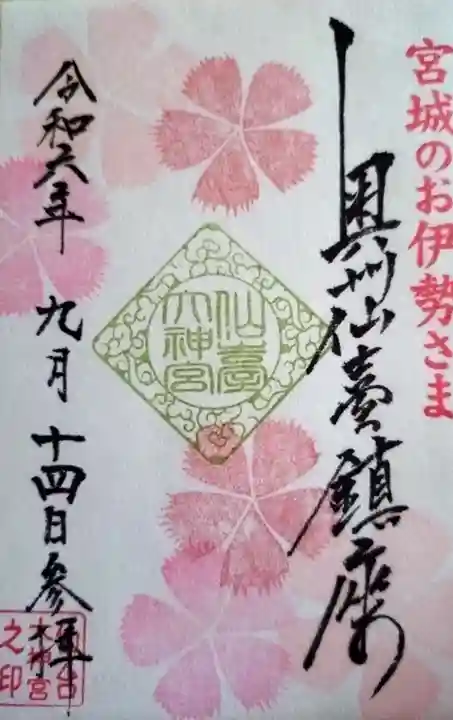 宮城のお伊勢さま
奥州仙臺鎮座
仙臺
大神宮
令和六年 九月 十四日参拝
仙台
大神宮
之印